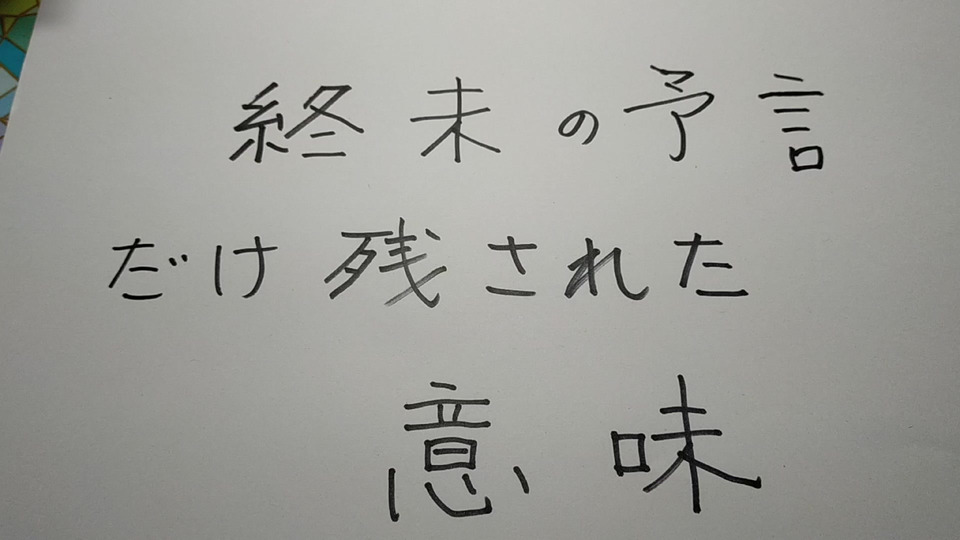 終末の予言
だけ残された
意味